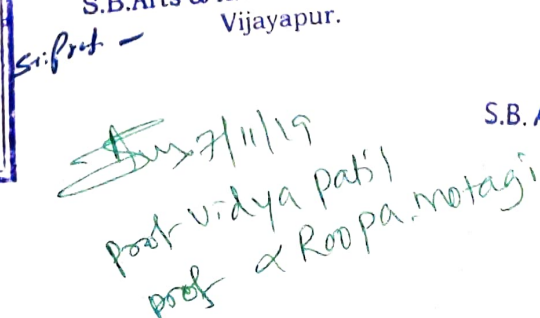 S.B.Arts &
Vijayapur.
Sr. Prof -
7/11/19
S.B. A
prof vidya patil
prof & Roopa.motagi